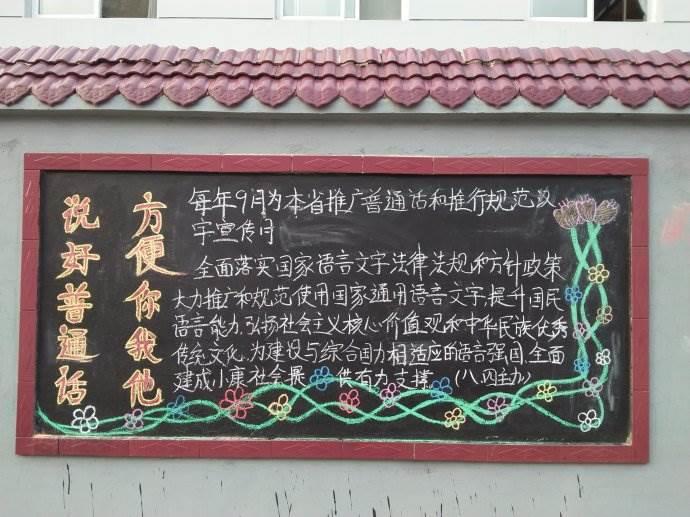 说好普通话
方便你我他
每年9月为本省推广普通话和推行规范汉
字宣传月
全面落实国家语言文字法律法规和方针政策
大力推广和规范使用国家通用语言文字,提升国民
语言能力,弘扬社会主义核心价值观和中华民族优秀
传统文化,为建设与综合国力相适应的语言强国,全面
建成小康社会 供有力支撑。(八.四主办)